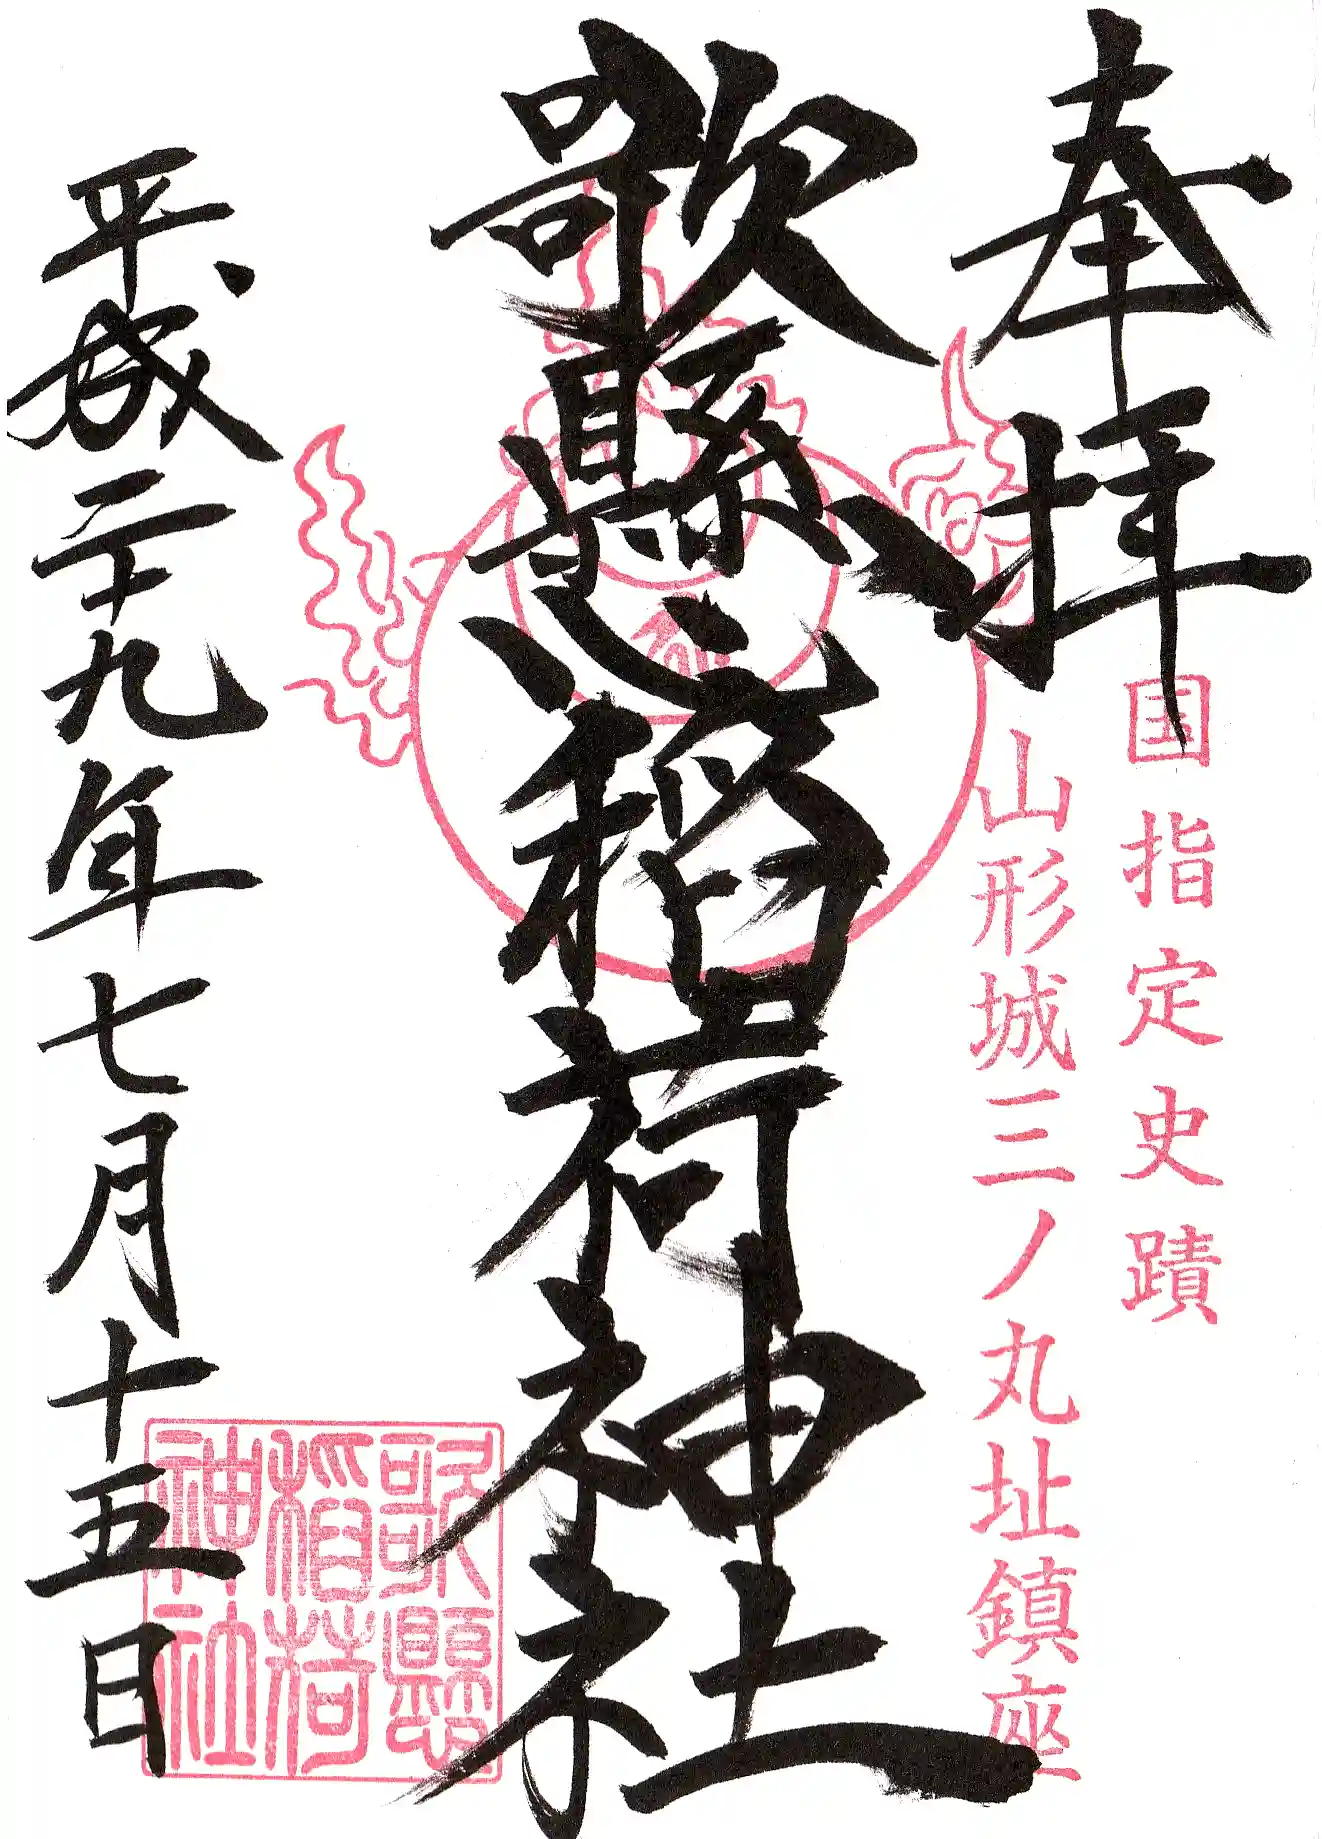 奉拝
国指定史蹟
山形城三ノ丸址鎮座
歌懸稲荷神社
歌懸
稲荷
神社
平成二十九年七月十五日